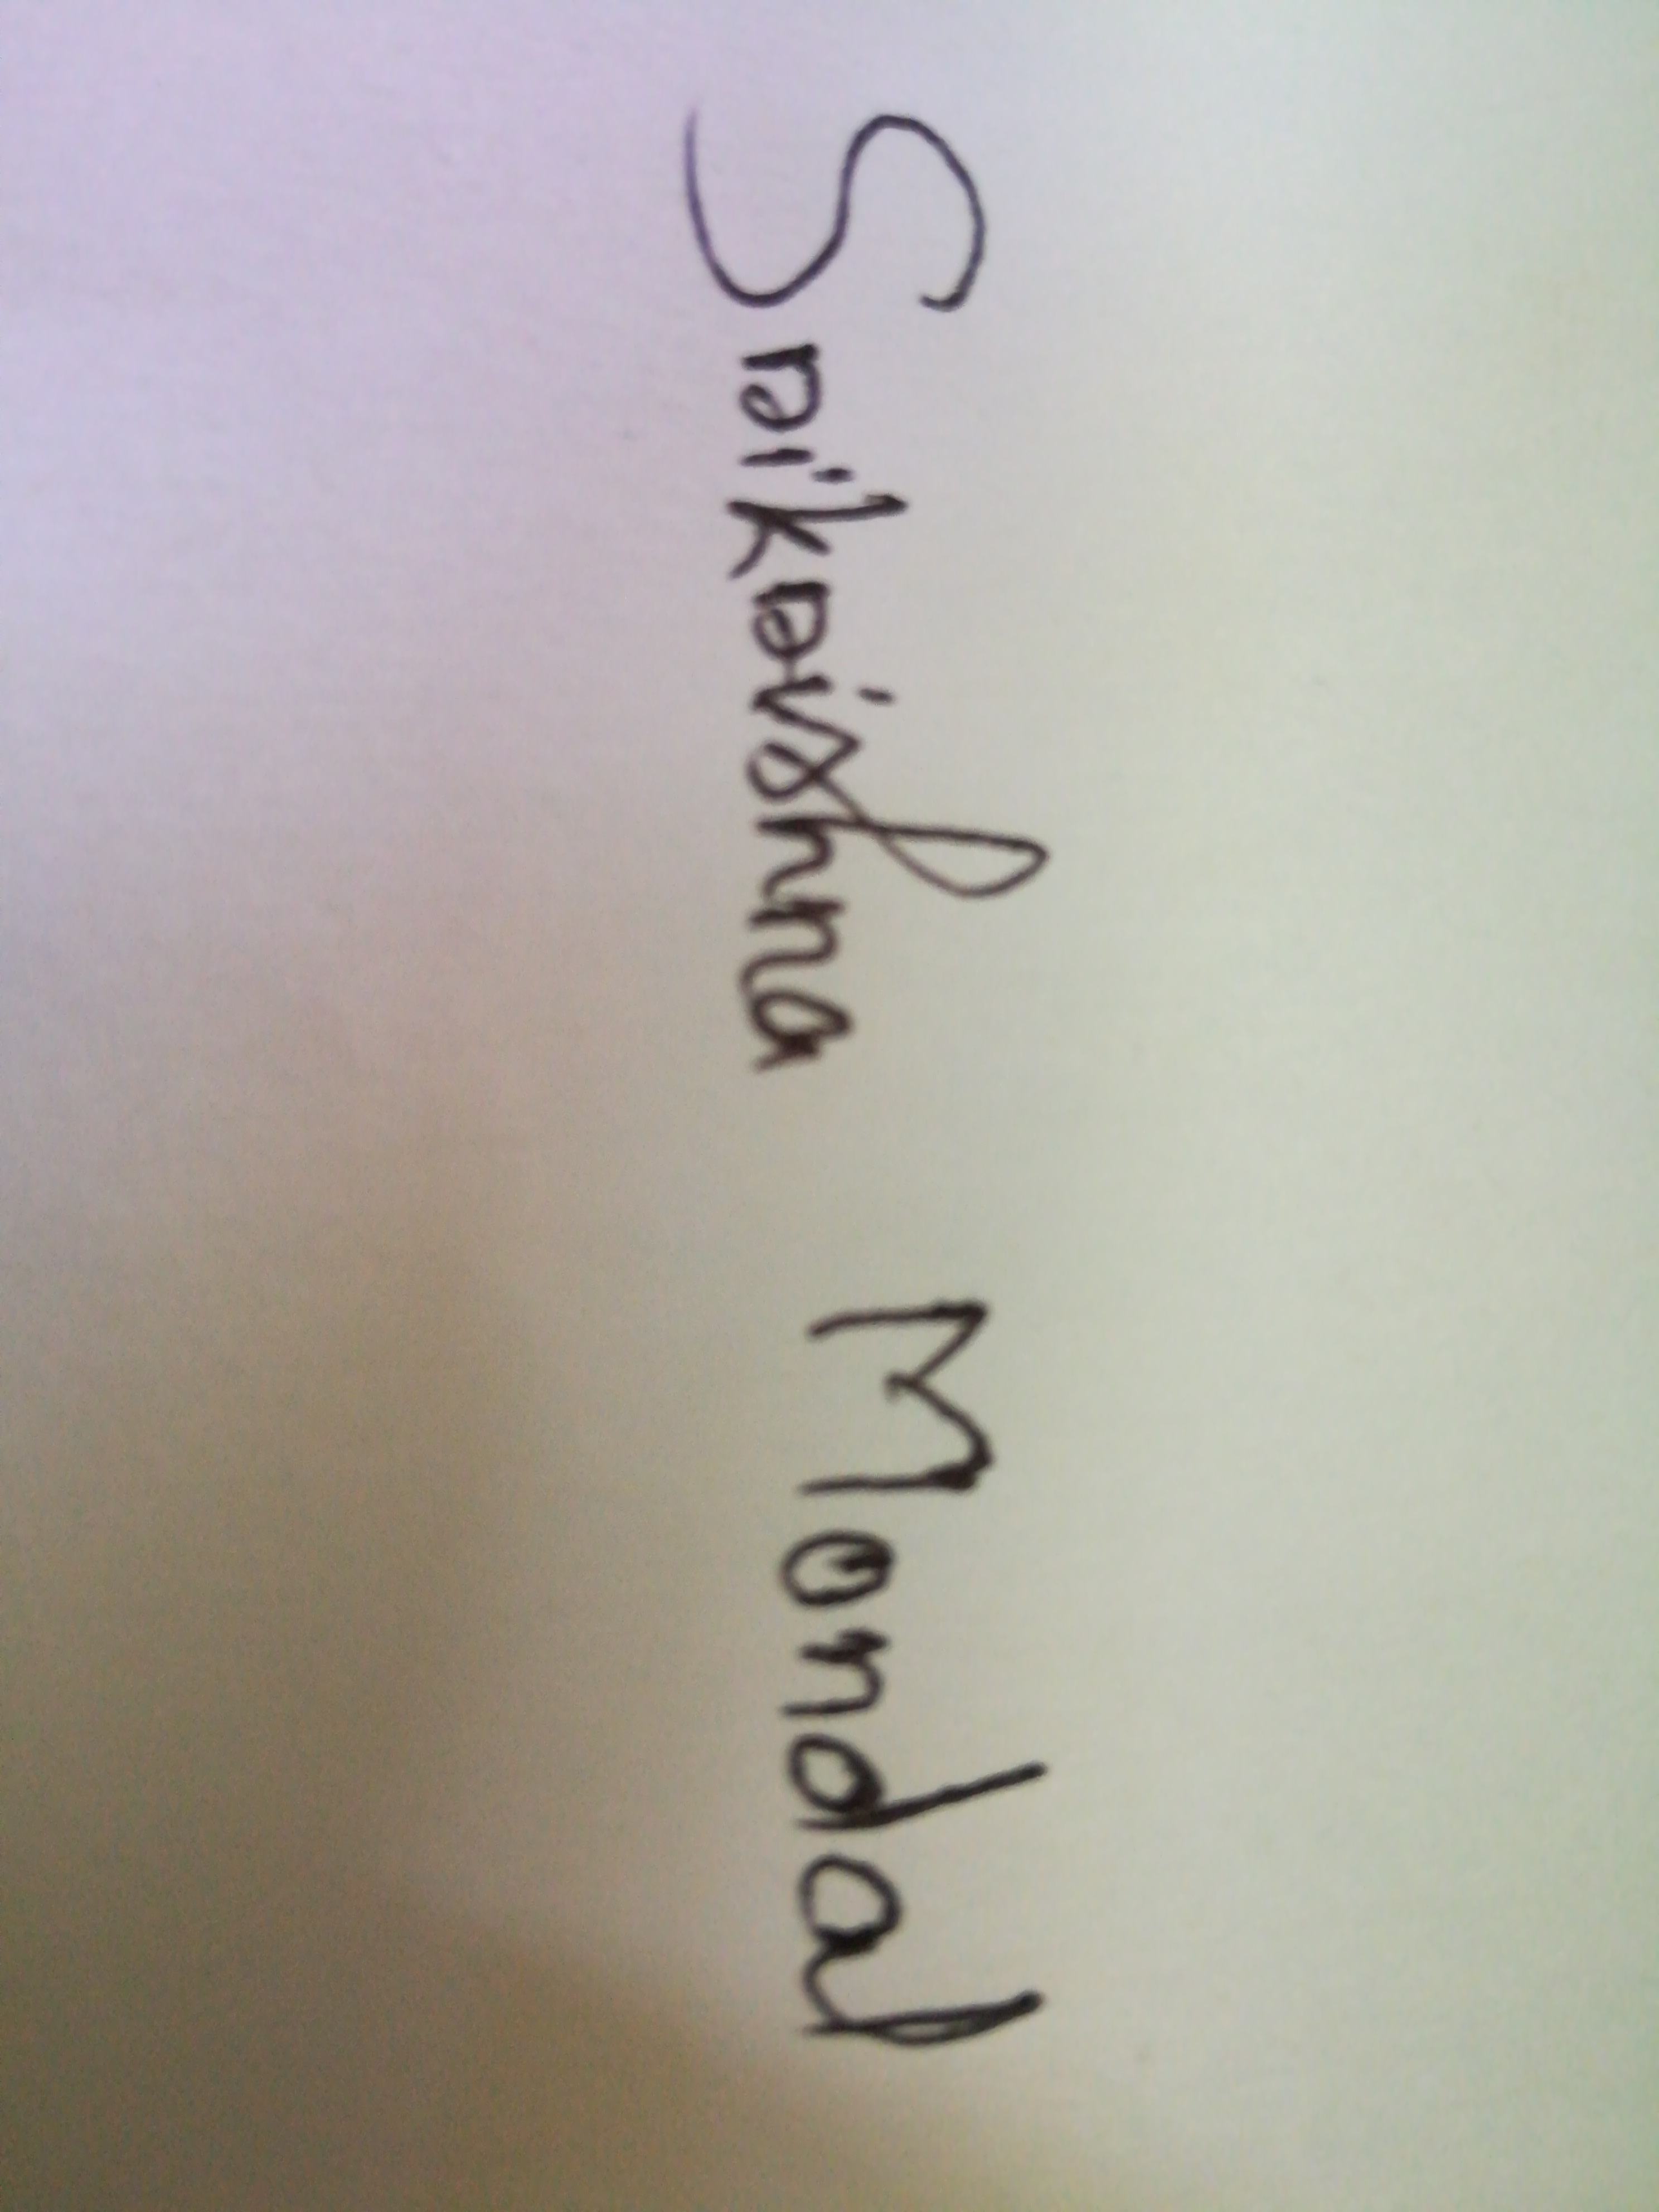 Srikrishna Mondal